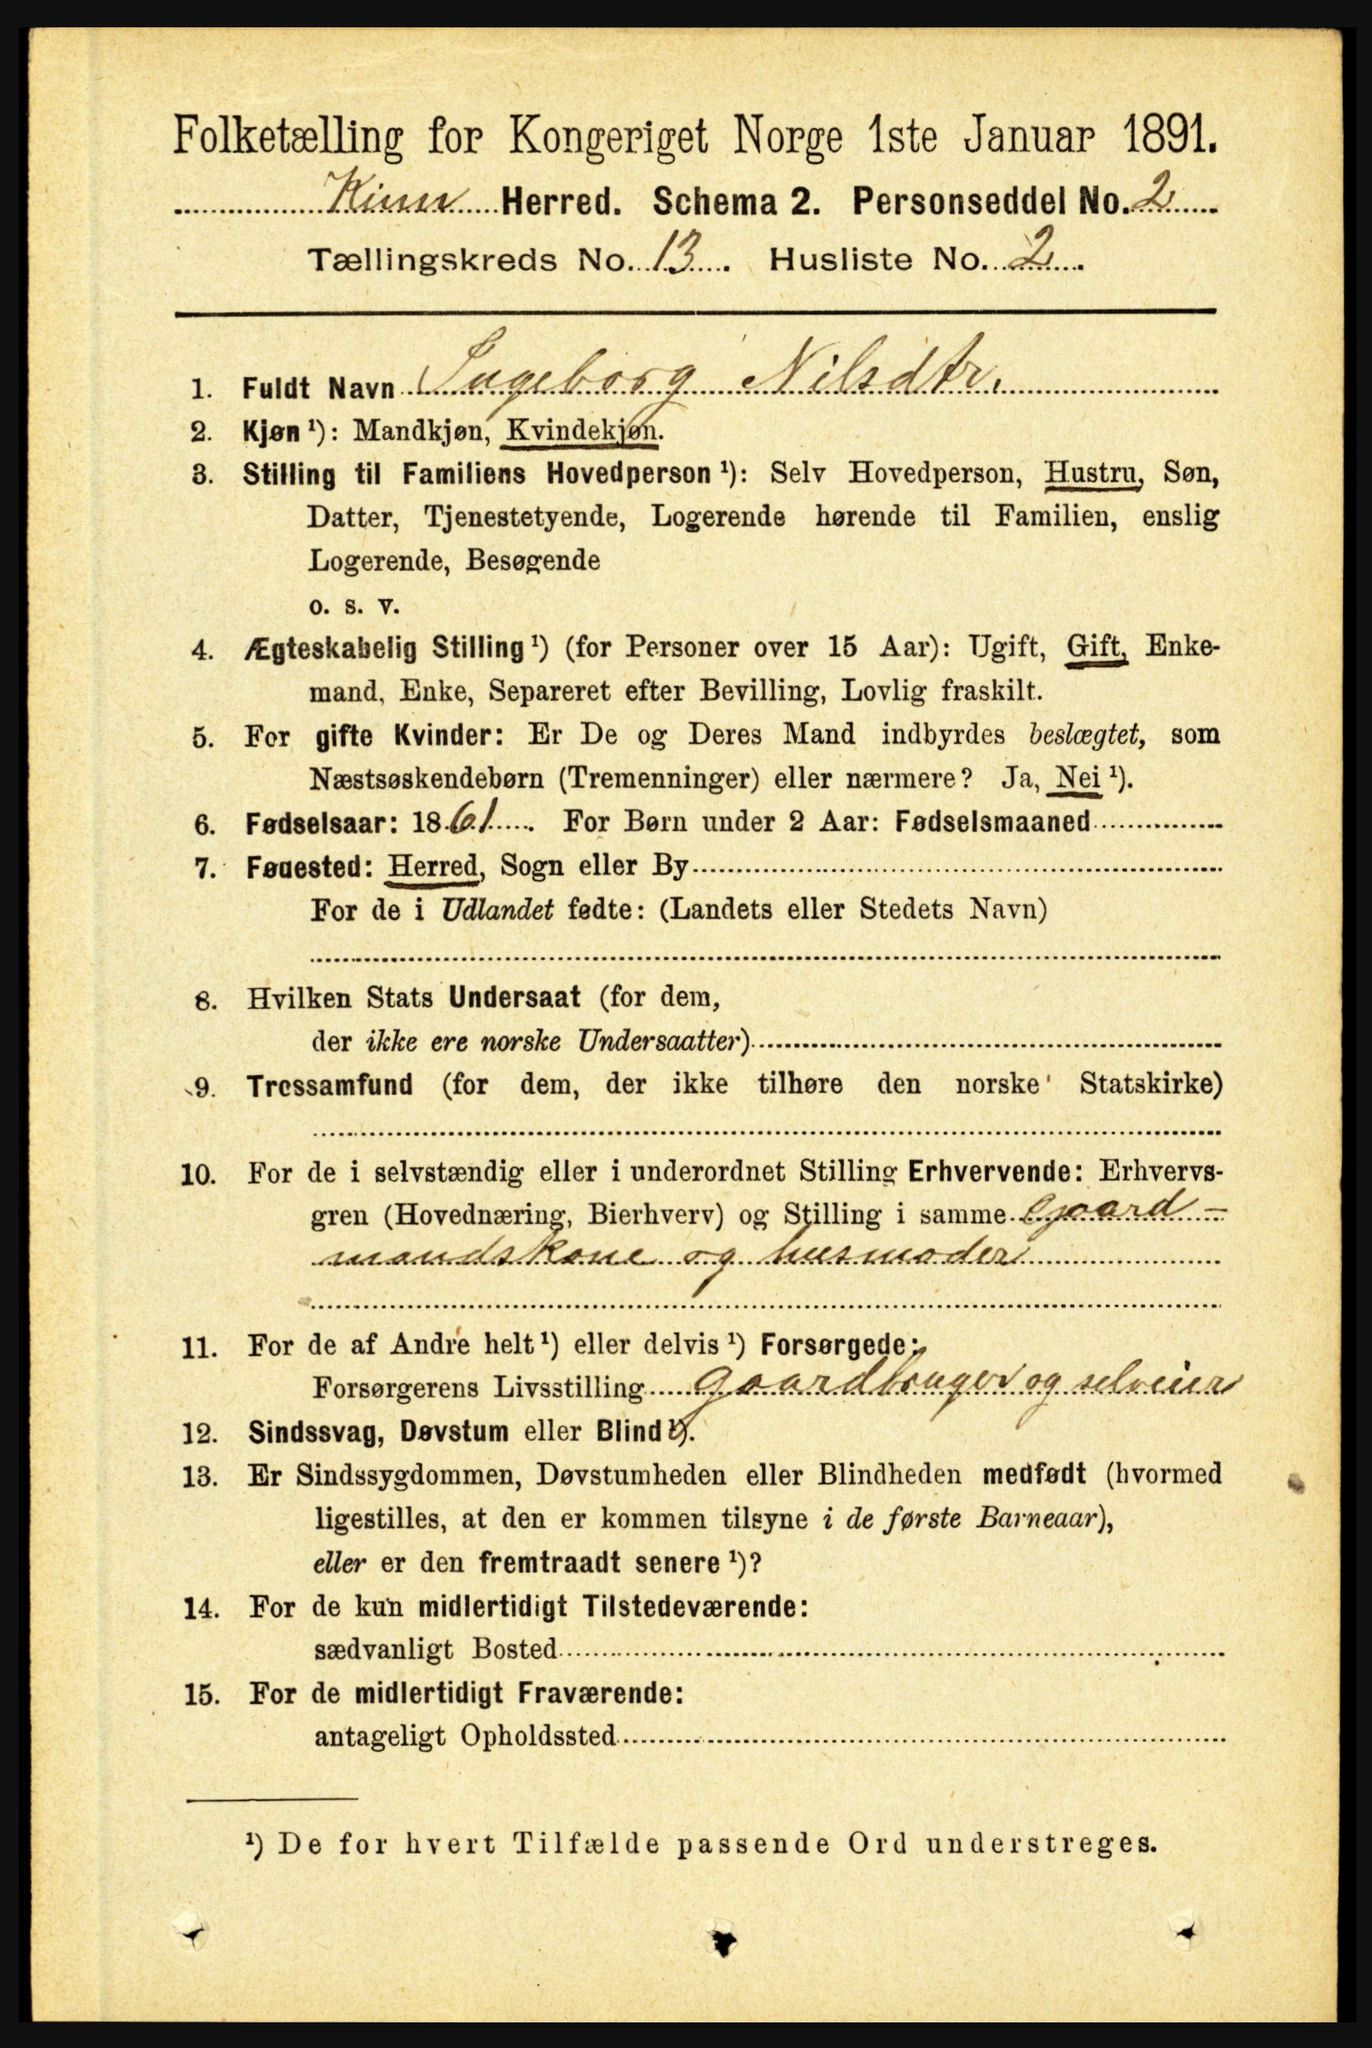 Folketælling for Kongeriget Norge 1ste Januar 1891.
Kinn Herred. Schema 2. Personseddel No. 2
Tællingskreds No. 13. Husliste No. 2.
1. Fuldt Navn Ingeborg Nilsdtr.
2. Kjøn ¹): Mandkjøn, Kvindekjøn.
3. Stilling til Familiens Hovedperson ¹): Selv Hovedperson, Hustru, Søn,
Datter, Tjenestetyende, Logerende hørende til Familien, enslig
Logerende, Besøgende
o. s. v.
4. Ægteskabelig Stilling ¹) (for Personer over 15 Aar): Ugift, Gift, Enke-
mand, Enke, Separeret efter Bevilling, Lovlig fraskilt.
5. For gifte Kvinder: Er De og Deres Mand indbyrdes beslægtet, som
Næstsøskendebørn (Tremenninger) eller nærmere? Ja, Nei ¹).
6. Fødselsaar: 1861. For Børn under 2 Aar: Fødselsmaaned
7. Føuested: Herred, Sogn eller By
For de i Udlandet fødte: (Landets eller Stedets Navn)
8. Hvilken Stats Undersaat (for dem,
der ikke ere norske Undersaatter)
9. Trossamfund (for dem, der ikke tilhøre den norske Statskirke)
10. For de i selvstændig eller i underordnet Stilling Erhvervende: Erhvervs-
gren (Hovednæring, Bierhverv) og Stilling i samme Gaard-
mandskone og husmoder
11. For de af Andre helt ¹) eller delvis ¹) Forsørgede:
Forsørgerens Livsstilling gaardbruger og selveier
12. Sindssvag, Døvstum eller Blind ¹).
13. Er Sindssygdommen, Døvstumheden eller Blindheden medfødt (hvormed
ligestilles, at den er kommen tilsyne i de første Barneaar),
eller er den fremtraadt senere ¹)?
14. For de kun midlertidigt Tilstedeværende:
sædvanligt Bosted
15. For de midlertidigt Fraværende:
antageligt Opholdssted
¹) De for hvert Tilfælde passende Ord understreges.